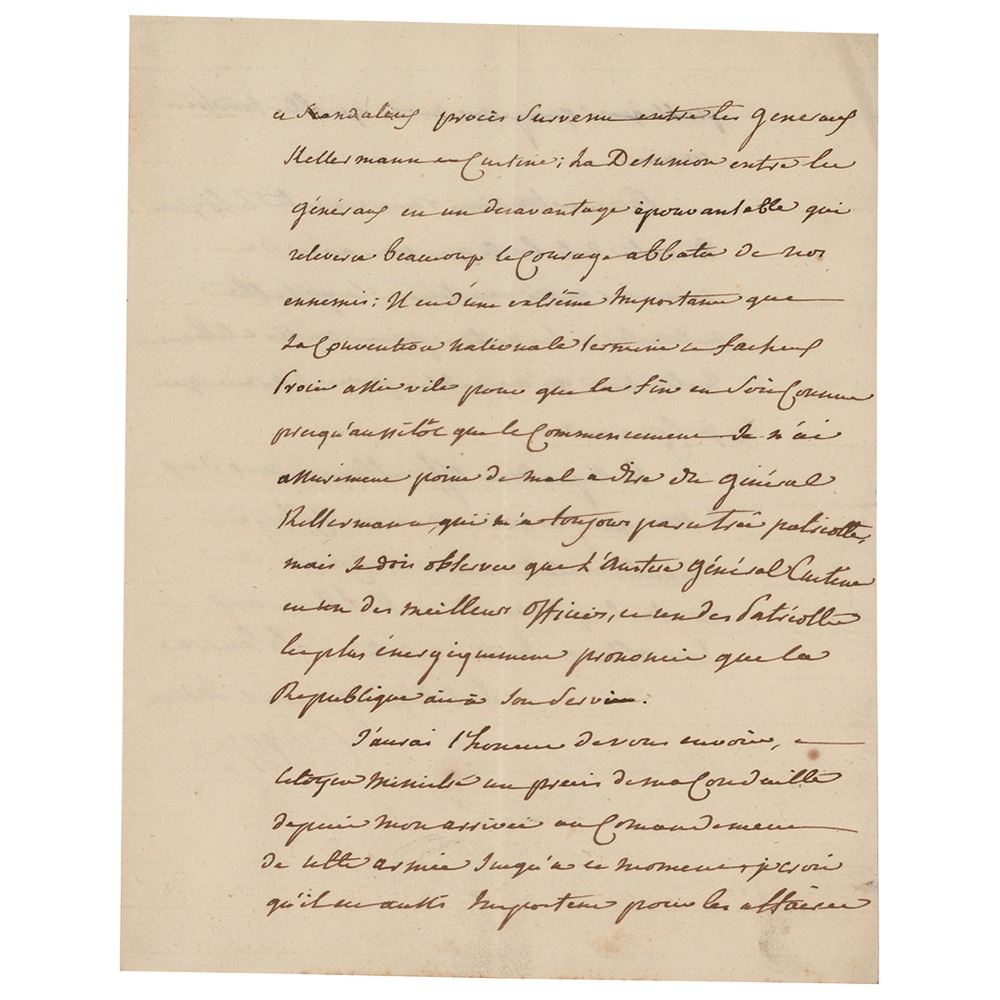 ce scandaleux procès survenu entre les generaux
Kellermann et Custine; La Desunion entre les
généraux est un desavantage épouvantable qui
relevera beaucoup le courage abbatu de nos
ennemis; Il est d'une extrême Importance que
La Convention nationale termine ce facheux
Procès assés vite pour que la fin en soit Connue
presqu'aussitôt que le Commencement Je n'ai
assurément point de mal a dire du général
Kellermann, qui m'a toujours paru très patriotte,
mais Je dois observer que L'Austere général Custine
est un des meilleurs officiers, et un des Patriotte
les plus énergiquement prononcés que la
Republique ait à son Service.
J'aurai l'honneur de vous envoier,
Citoyen Ministre un precis de ma Conduitte
depuis mon arrivée au Comandement
de cette armée Jusqu'à ce moment, je crois
qu'il est aussi Important pour les affaires